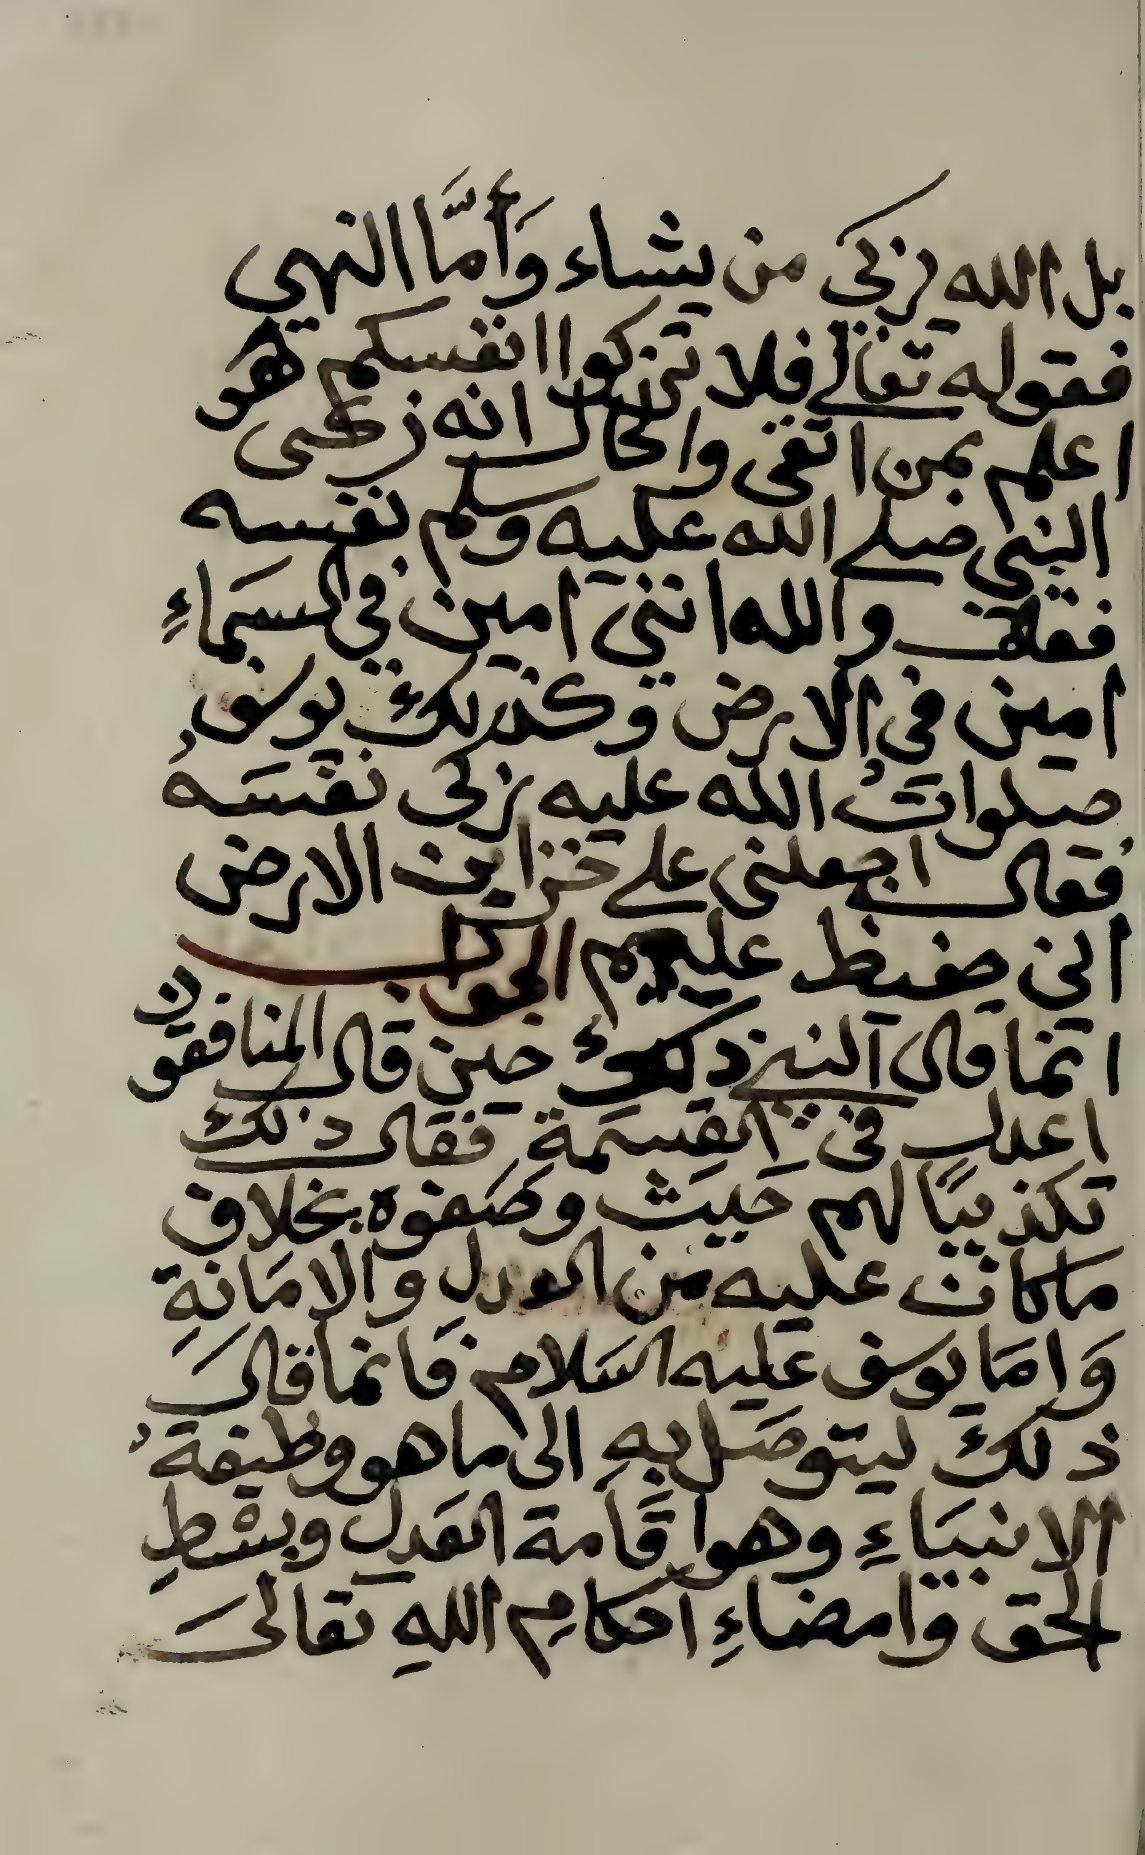 بل الله يزكى من يشاء وَأَمَّا النهي
فقوله تعالى فلا تزكوا انفسكم هُو
اعلم بمن اتقى والحال انه زكى
النبي صلى الله عليه وسلم نفسه
فقال والله انني امين في السمَاءِ
امين في الارض وكذلك يوسف
صلواتُ الله عليه زكى نفسَهُ
فقال اجعلني على خزاين الارض
اني حفيظ عليم الجواب
انما قال النبي ذلك حين قال المنافقون
اعدل في القِسمَة فقال ذلك
تكذيبًا لهم حَيث وصَفوه بخلاف
مَا كان عليه من العدلِ والامَانةِ
وَامَا يوسف عليه السَلام فَانما قالَ
ذلكَ ليتوصَل بهِ الى ما هو وظيفة
الانبيَاءِ وهو اقَامة العَدلِ وبسْطِ
الحق وامضاءِ احكامِ اللهِ تعالىَ